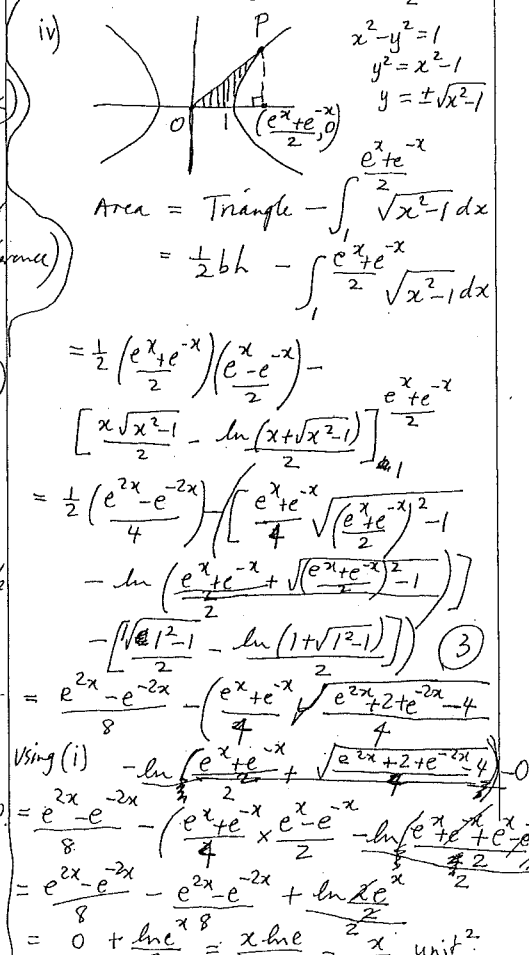 iv)
P
x² - y² = 1
y² = x² - 1
y = ±√(x² - 1)
O 1 ((e^x + e^-x)/2, 0)
Area = Triangle - ∫_1^((e^x + e^-x)/2) √(x² - 1) dx
= 1/2 bh - ∫_1^((e^x + e^-x)/2) √(x² - 1) dx
= 1/2 ((e^x + e^-x)/2)((e^x - e^-x)/2) -
[x√(x² - 1)/2 - ln(x + √(x² - 1))/2]_1^((e^x + e^-x)/2)
= 1/2 ((e^2x - e^-2x)/4) - ([(e^x + e^-x)/4 √(((e^x + e^-x)/2)² - 1)
- ln((e^x + e^-x)/2 + √(((e^x + e^-x)/2)² - 1))/2]
- [1√(1² - 1)/2 - ln(1 + √(1² - 1))/2]) ③
= (e^2x - e^-2x)/8 - ((e^x + e^-x)/4 √((e^2x + 2 + e^-2x - 4)/4)
Using (i) - ln((e^x + e^-x)/2 + √((e^2x + 2 + e^-2x - 4)/4))/2 - 0
= (e^2x - e^-2x)/8 - ((e^x + e^-x)/4 × (e^x - e^-x)/2 - ln(e^x + e^-x + e^x - e
= (e^2x - e^-2x)/8 - (e^2x - e^-2x)/8 + ln (2e^x/2)/2
= 0 + ln e^x = x ln e = x unit²